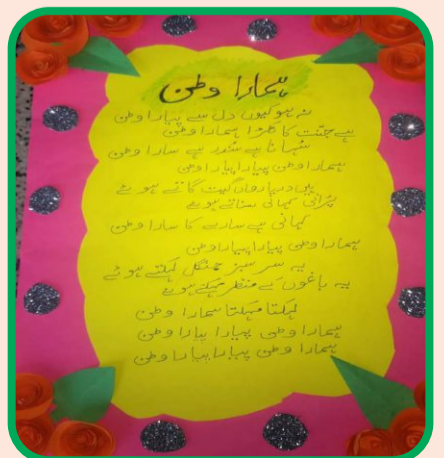 ہمارا وطن
نہ ہو کیوں دل سے پیارا وطن
ہے جنت کا ٹکڑا ہمارا وطن
سہانا ہے سندر ہے سارا وطن
ہمارا وطن پیارا پیارا وطن
یہ دریا رواں گیت گاتے ہوئے
پرانی کہانی سناتے ہوئے
کہانی ہے سارے کا سارا وطن
ہمارا وطن پیارا پیارا وطن
یہ سر سبز جنگل لہکتے ہوئے
یہ باغوں کے منظر مہکتے ہوئے
لہکتا مہکتا ہمارا وطن
ہمارا وطن پیارا پیارا وطن
ہمارا وطن پیارا پیارا وطن